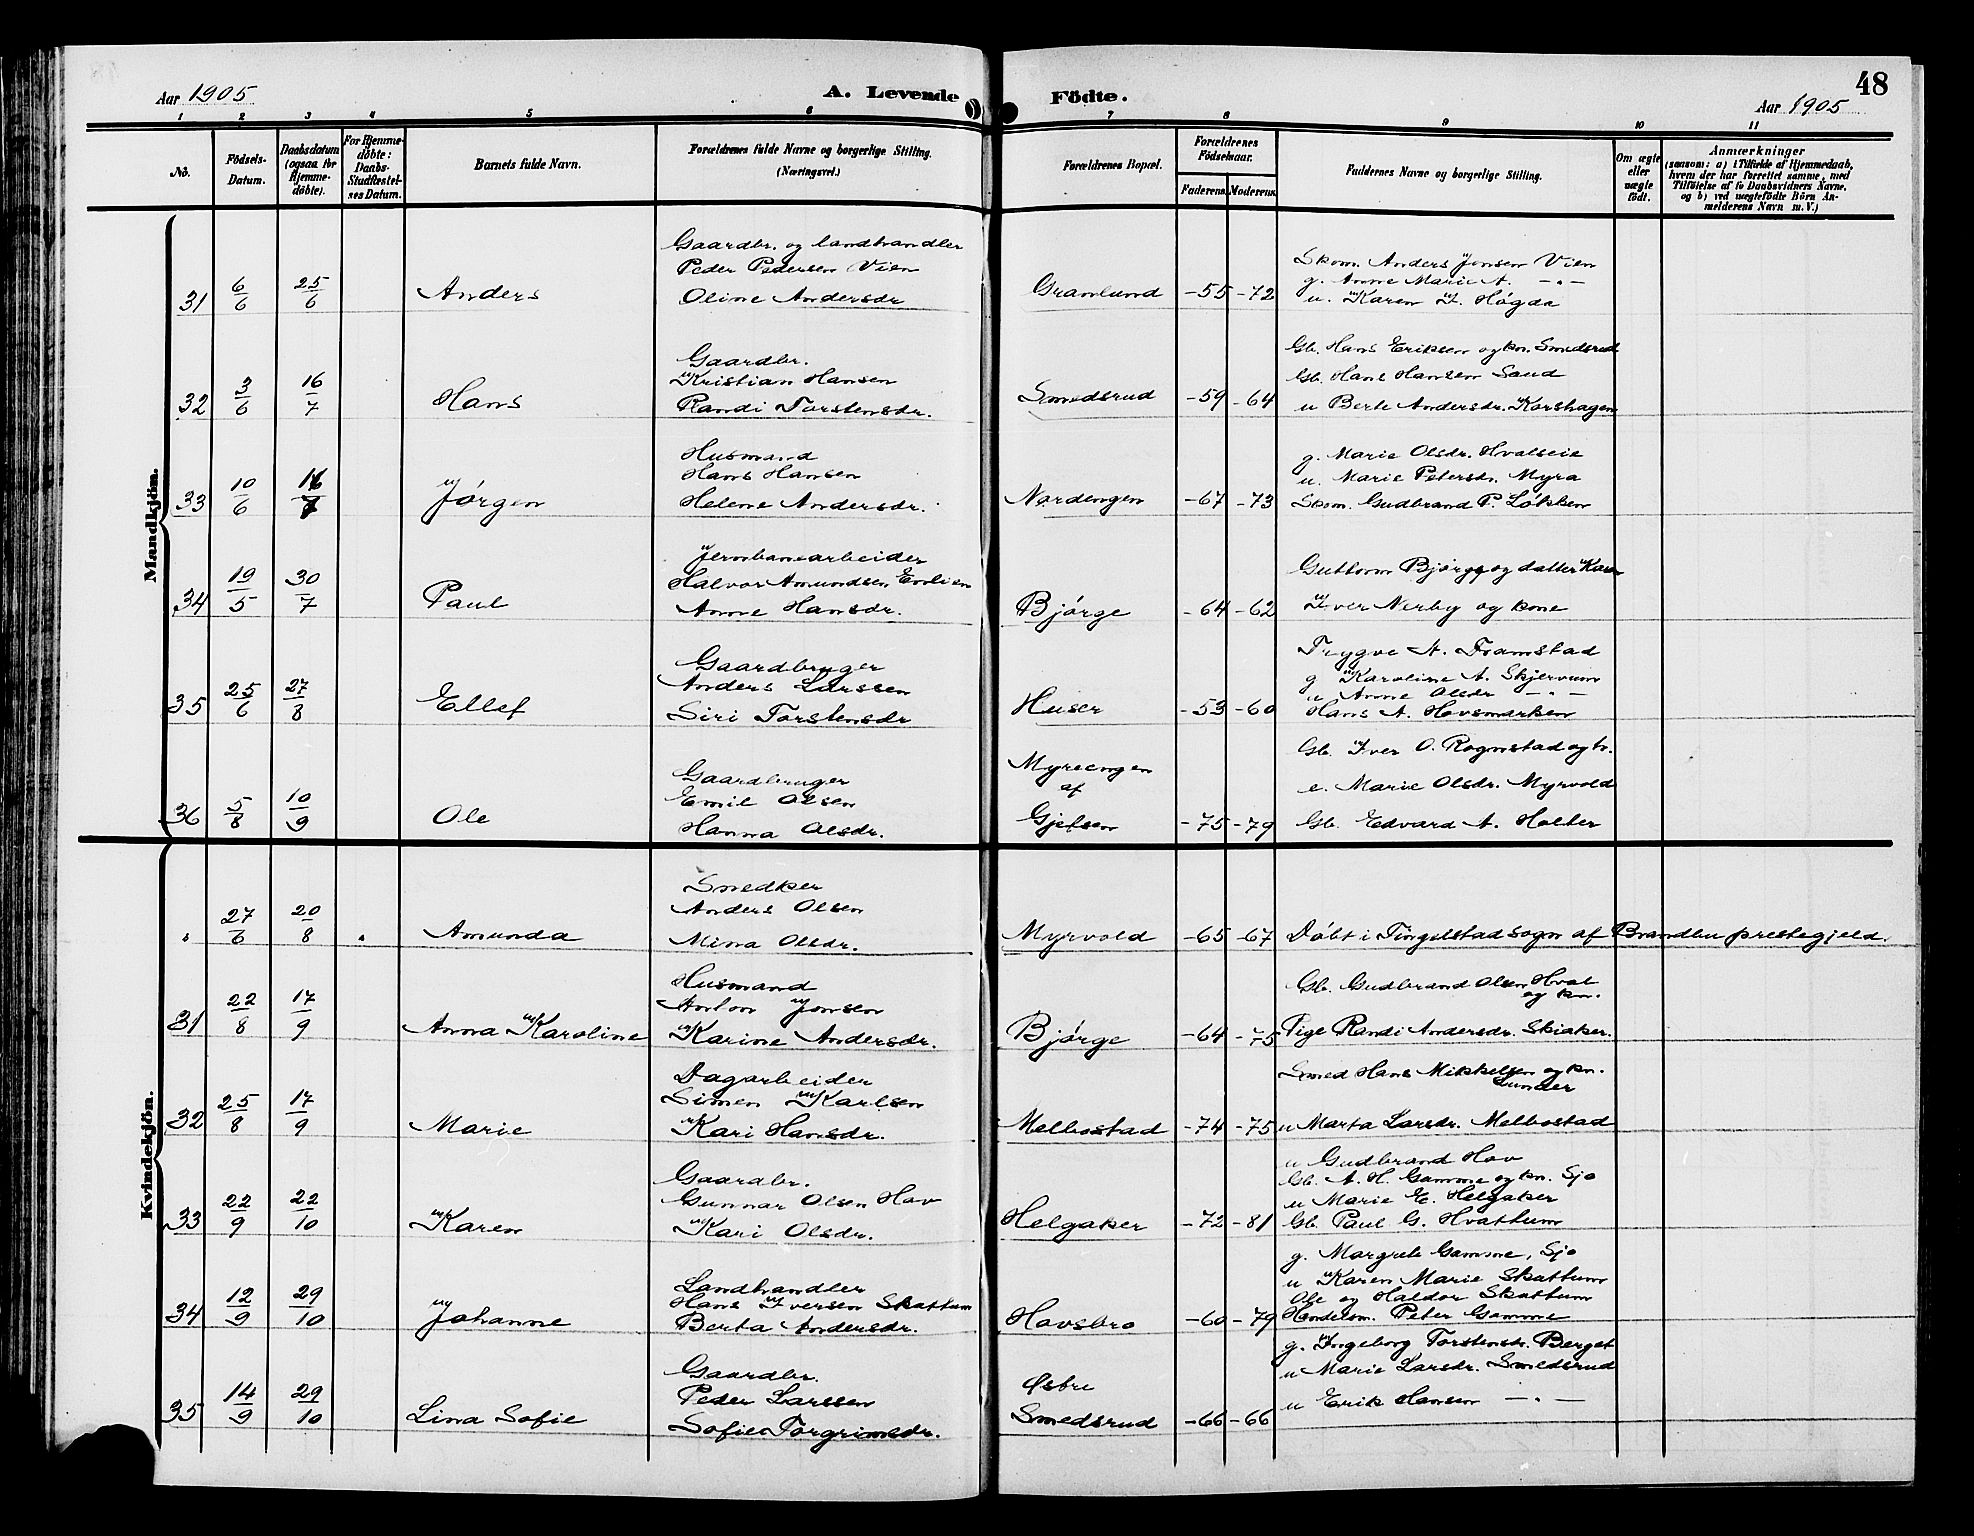 Aar 1905
A. Levende
Födte.
48
Aar 1905
1 2 3 4 5 6 7 8 9 10 11
No.
Födsels-
Datum.
Daabsdatum
(ogsaa for
Hjemme-
döbte).
For Hjemme-
döbte:
Daabs-
Stadfæstel-
ses Datum.
Barnets fulde Navn.
Forældrenes fulde Navne og borgerlige Stilling.
(Næringsvei.)
Forældrenes Bopæl.
Forældrenes
Födselsaar.
Faderens.
Moderens.
Faddernes Navne og borgerlige Stilling.
Om ægte
eller
uægte
födt.
Anmærkninger
(saasom: a) i Tilfælde af Hjemmedaab,
hvem der har forrettet samme, med
Tilföielse af to Daabsvidners Navne,
og b) ved uægtefödte Börn An-
melderens Navn m. V.)
Mandkjön.
31 6/6 25/6 Anders
Gaardbr. og landhandler
Peder Pedersen Vien
Oline Andersdr
Granlund -55 -72
Skom. Anders Jonsen Vien
g. Anne Marie A. -"-
u. Karen I. Høgda
32 3/6 16/7 Hans
Gaardbr.
Kristian Hansen
Randi Torstensdr.
Smedsrud -59 -64
Gb. Hans Eriksen og kn. Smedsrud
Gb. Hans Hansen Sand
u Berte Andersdr. Korshagen
33 10/6 16/7 Jørgen
Husmand
Hans Hansen
Helene Andersdr.
Nordengen -67 -73
g. Marie Olsdr. Hvalseie
u. Marie Petersdr. Myra
Skom. Gudbrand P. Løkken
34 19/5 30/7 Paul
Jernbanearbeider
Halvor Amundsen
Anne Hansdr.
Bjørge -64 -62
Guttorm Bjørge og datter Karen
Iver Nerby og kone
35 25/6 27/8 Ellef
Gaardbruger
Anders Larssen
Siri Torstensdr
Huser -53 -60
Trygve A. Framstad
g Karoline A. Skjervum
u Anne Olsdr -"-
Hans A. Hovsmarken
36 5/8 10/9 Ole
Gaardbruger
Emil Olsen
Hanna Olsdr.
Myreengen
af
Gjefsen -75 -79
Gb. Iver O. Rognstad og h.
e. Marie Olsdr. Myrvold
Gb. Edvard A. Holter
Kvindekjön.
27/6 20/8 Amunda
Snedker
Anders Olsen
Mina Olsdr.
Myrvold -65 -67
Døbt i Tingelstad sogn af Brandbu prestegjeld.
31 22/8 17/9 Anna Karoline
Husmand
Anton Jonsen
Karine Andersdr.
Bjørge -64 -75
Gb. Gudbrand Olsen Hval
og kn.
Pige Randi Andersdr. Skiaker.
32 25/8 17/9 Marie
Dagarbeider
Simen Karlsen
Kari Hansdr.
Melbostad -74 -75
Smed Hans Mikkelsen og kn.
Lunder
u Marta Larsdr. Melbostad
33 22/9 22/10 Karen
Gaardbr.
Gunnar Olsen Hov
Kari Olsdr.
Helgaker -72 -81
u Gudbrand Hov
Gb. A. H. Gamme og kn. Sjo
u Marie E. Helgaker
Gb. Paul G. Hvattum
34 12/9 29/10 Johanne
Landhandler
Hans Iversen Skattum
Berta Andersdr.
Hovsbro -60 -79
g. Margrete Gamme, Sjo
u Karen Marie Skattum
Ole og Haldor Skattum
Handelsm. Peter Gamme
35 14/9 29/10 Lina Sofie
Gaardbr.
Peder Larssen
Sofie Torgrimsdr.
Øsbre
Smedsrud -66 -66
g. Ingeborg Torstensdr. Berget
u Marie Larsdr. Smedsrud
u Erik Hansen -"-